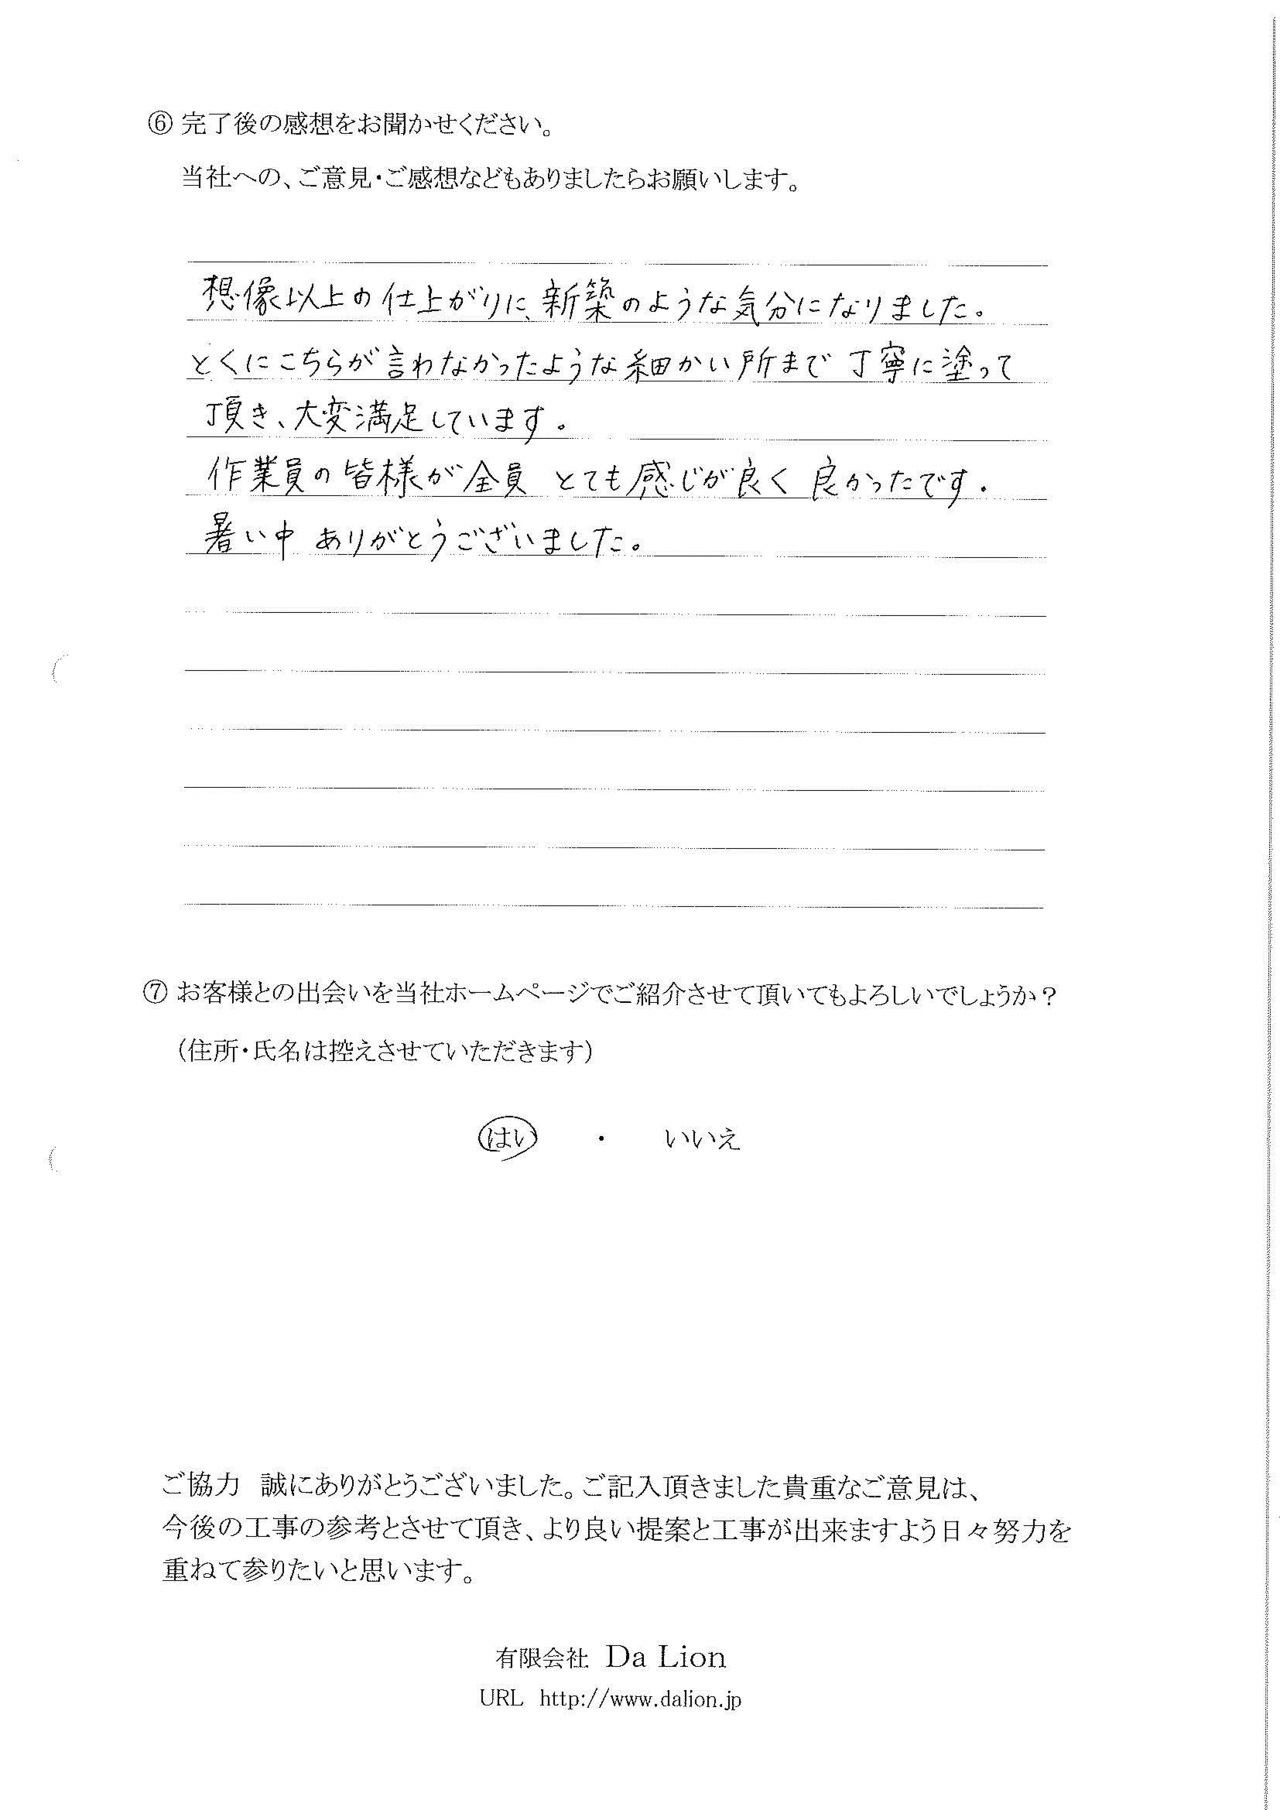 ⑥ 完了後の感想をお聞かせください。
当社への、ご意見・ご感想などもありましたらお願いします。
想像以上の仕上がりに、新築のような気分になりました。
とくにこちらが言わなかったような細かい所まで 丁寧に塗って
頂き、大変満足しています。
作業員の皆様が全員 とても感じが良く 良かったです.
暑い中 ありがとうございました。
⑦ お客様との出会いを当社ホームページでご紹介させて頂いてもよろしいでしょうか？
（住所・氏名は控えさせていただきます）
はい ・ いいえ
ご協力　誠にありがとうございました。ご記入頂きました貴重なご意見は、
今後の工事の参考とさせて頂き、より良い提案と工事が出来ますよう日々努力を
重ねて参りたいと思います。
有限会社 Da Lion
URL http://www.dalion.jp